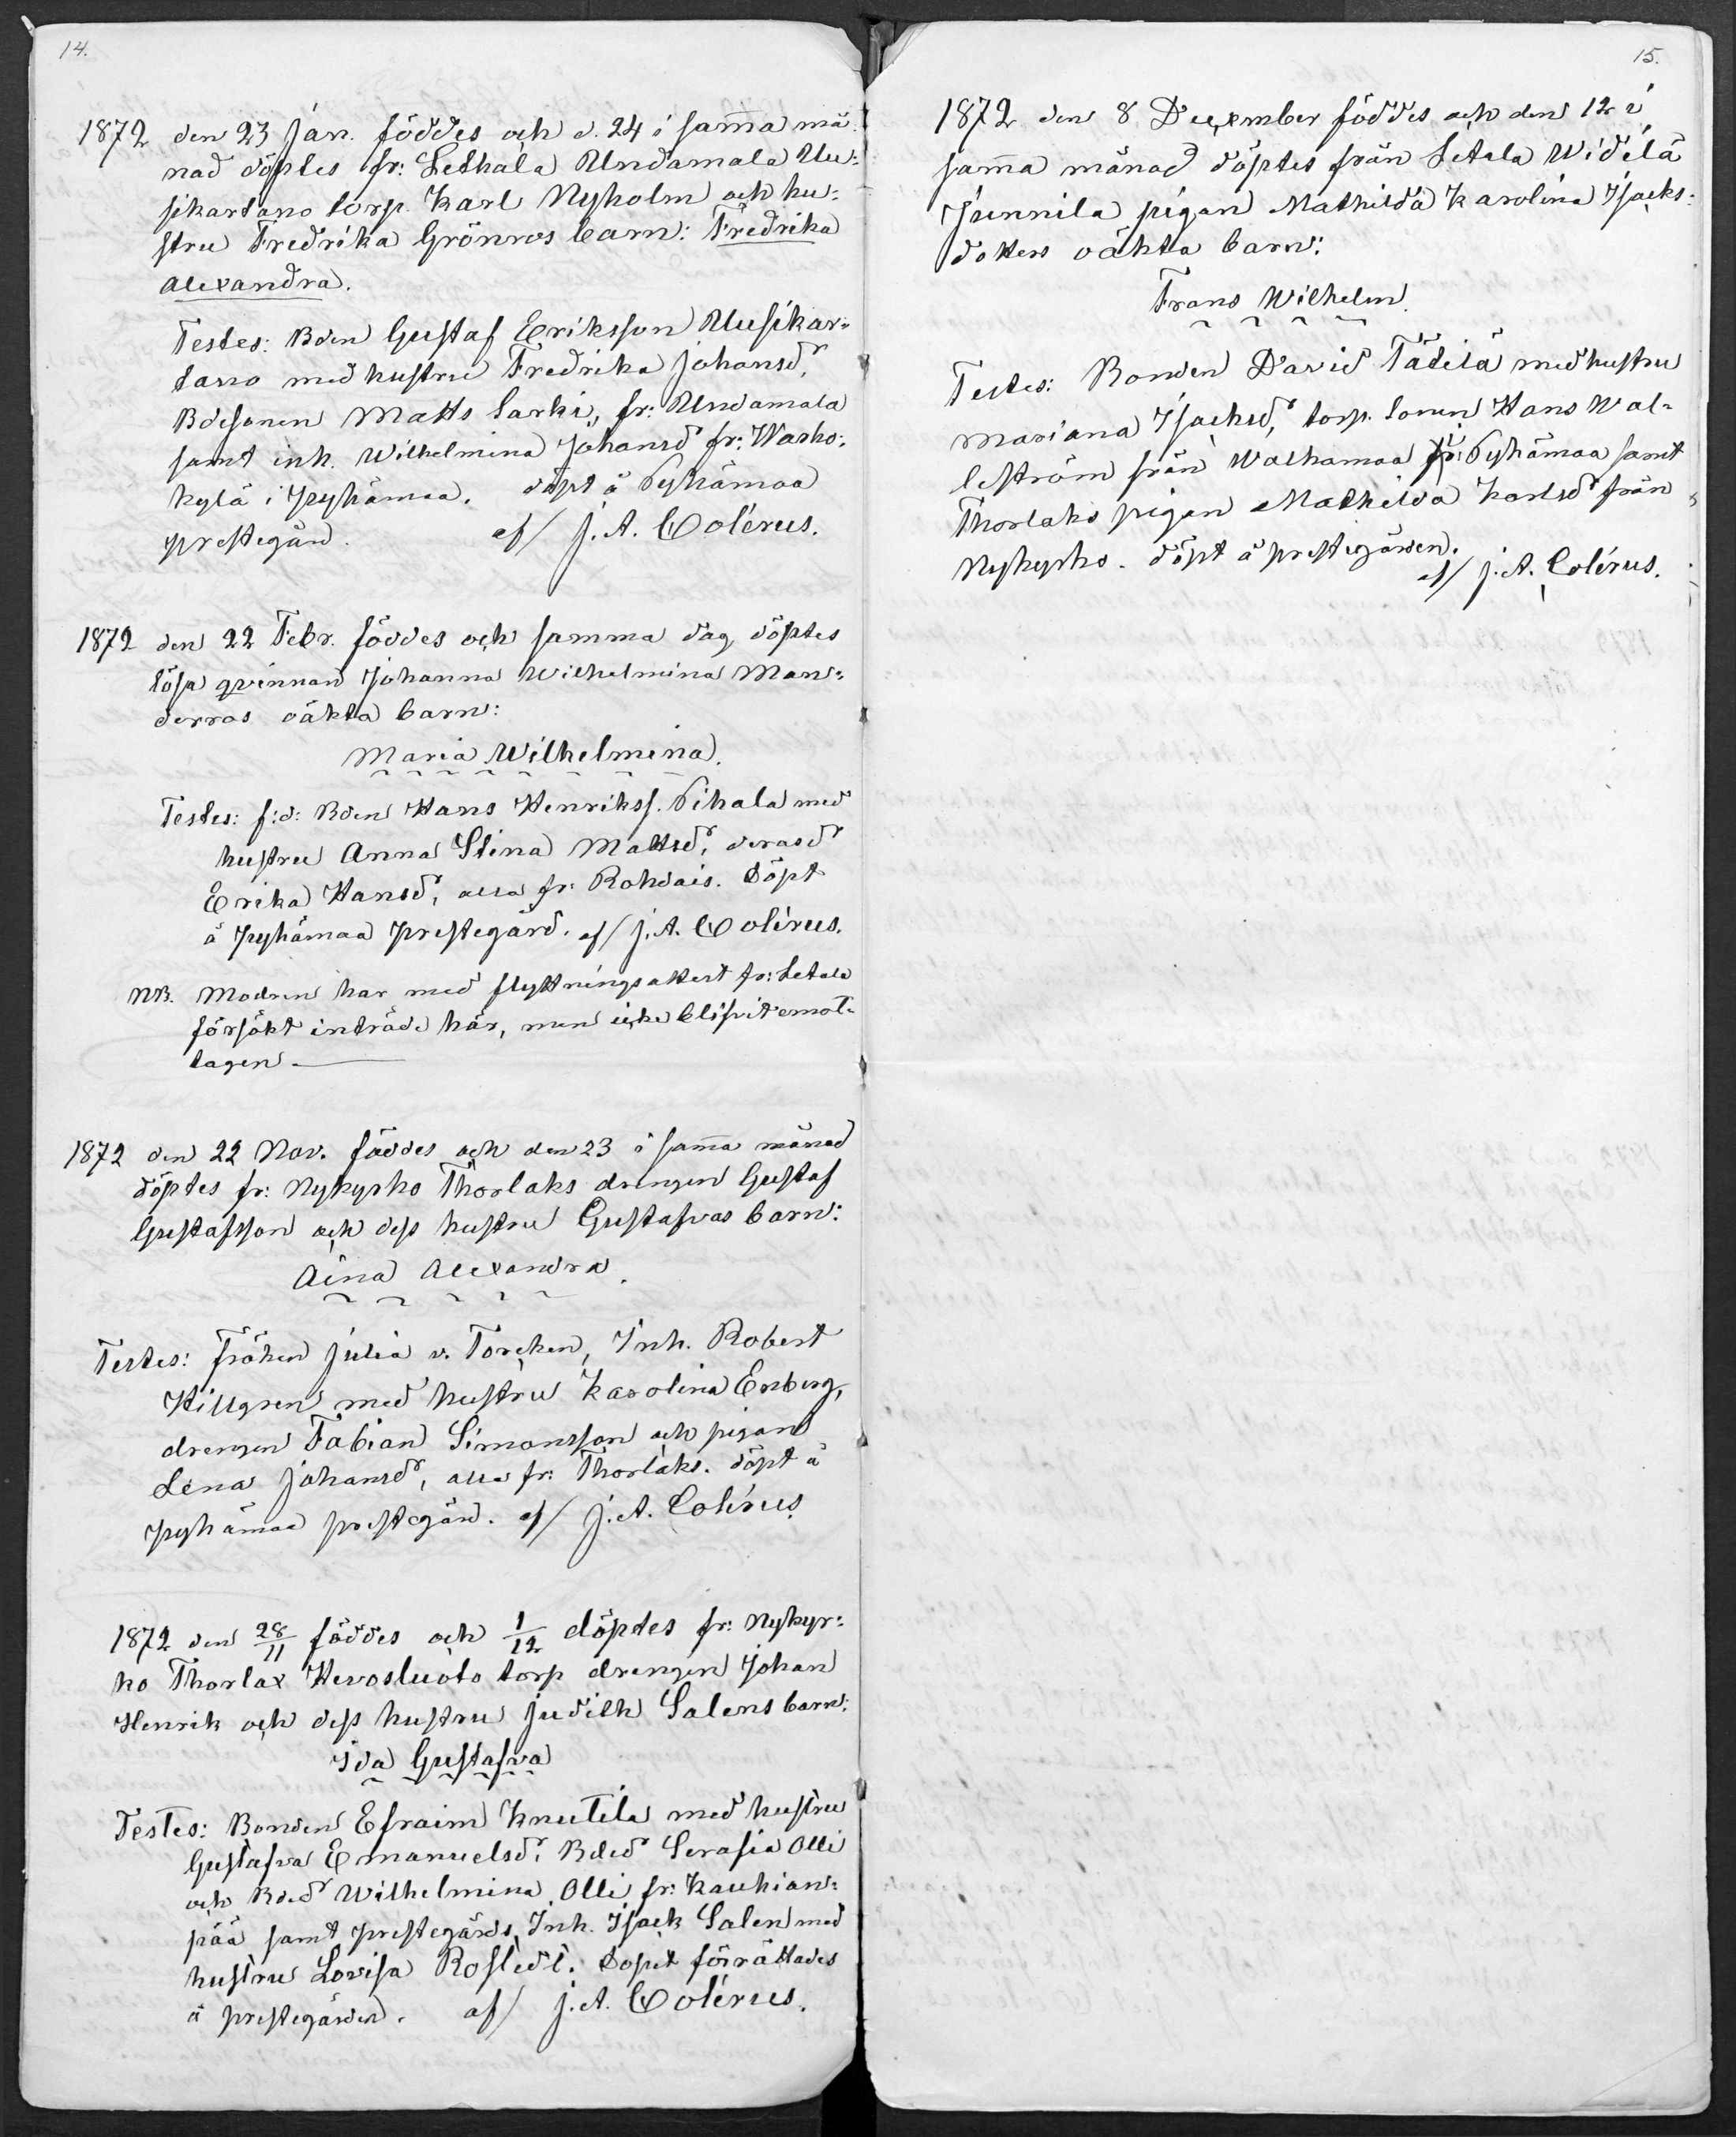 14.
1872 den 23 Jan. föddes och d. 24 i sam̄a må-
nad döptes fr: Lethala Undamala Uu:
sikartano torp. Karl Nyholm och hu:
stru Fredrika Grönros barn: Fredrika
Alexandra.
Testes: Bden Gustaf Eriksson Uusikar:
tano med hustru Fredrika Johansd,
Bdesonen Matts Sarki, fr: Undamala
samt inh. Wilhelmina Johansd fr: Warho:
kylä i Pyhämaa. döpt å Pyhämaa
prestegård. af/ J. A. Colérus.
1872 den 22 Febr. föddes och samma dag döptes
lösa qvinnan Johanna Wilhelmina Man:
derros oäkta barn:
Maria Wilhelmina.
Testes: f:d: Bden Hans Henrikss. Pihala med
hustru Anna Stina Mattsd, derasd
Erika Hansd, alla fr: Rohdais. Döpt
å Pyhämaa prestegård. af/ J. A. Colérus.
NB. Modren har med flyttningsattest fr: Letala
försökt inträde här, men icke blifvit emot:
tagen
1872 den 22 Nov. föddes och den 23 i sam̄a månad
döptes fr: Nykyrko Thorlaks drengen Gustaf
Gustafsson och dess hustru Gustafvas barn:
Aina Alexandra.
Testes: Fröken Julia v. Torcken, Inh. Robert
Hillgren med hustru Karolina Enberg,
drengen Fabian Simonsson och pigan
Lena Johansd, alla fr: Thorlaks. döpt å
Pyhämaa prestegård. af/ J. A. Colérus.
1872 den 28/11 föddes och 1/12 döptes fr: Nykyr:
ko Thorlax Hevosluoto torp drengen Johan
Henrik och dess hustru Judith Salens barn:
Ida Gustafva
Testes: Bonden Efraim Knutila med hustru
Gustafva Emanuelsd, Bded Serafia Olli
och Bded Wilhelmina Olli fr: Kauhian:
pää samt prestegårds Inh. Isack Salen med
hustru Lovisa Rostedt. Dopet förrättades
å prestegården. af/ J. A. Colérus.
15.
1872 den 8 December föddes och den 12 i
sam̄a månad döptes från Letala Widilä
Junnila pigan Mathilda Karolina Isacks:
dotters oäkta barn:
Frans Wilhelm.
Testes: Bonden David Tätilä med hustru
Mariana Isacksd, torp. sonen Hans Wal:
lström från Walhamaa i Pyhämaa samt
Thorlaks pigan Mathilda Karlsd från
Nykyrko. döpt å prestegården.
af/ J. A. Colérus.